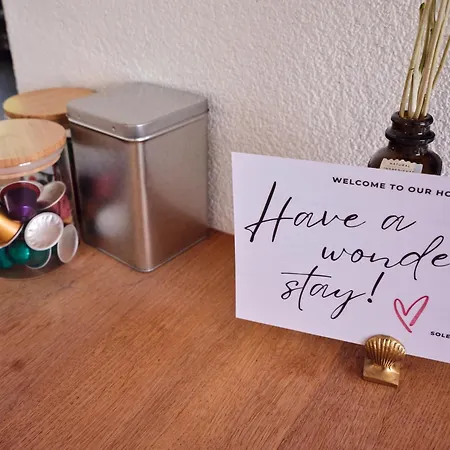 NATURAL
WELCOME TO OUR HO
Have a
wonde
stay!
SOLE